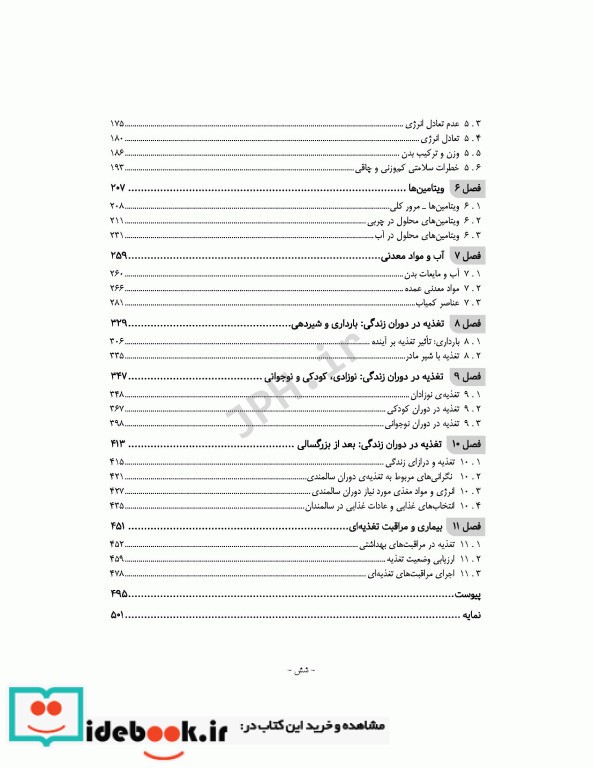 ۵ . ۳ عدم تعادل انرژی ..... ۱۷۵
۵ . ۴ تعادل انرژی ..... ۱۸۰
۵ . ۵ وزن و ترکیب بدن ..... ۱۸۶
۵ . ۶ خطرات سلامتی کم‌وزنی و چاقی ..... ۱۹۳
فصل ۶ ویتامین‌ها ..... ۲۰۷
۶ . ۱ ویتامین‌ها ـ مرور کلی ..... ۲۰۸
۶ . ۲ ویتامین‌های محلول در چربی ..... ۲۱۱
۶ . ۳ ویتامین‌های محلول در آب ..... ۲۳۱
فصل ۷ آب و مواد معدنی ..... ۲۵۹
۷ . ۱ آب و مایعات بدن ..... ۲۶۰
۷ . ۲ مواد معدنی عمده ..... ۲۶۶
۷ . ۳ عناصر کمیاب ..... ۲۸۱
فصل ۸ تغذیه در دوران زندگی: بارداری و شیردهی ..... ۳۲۹
۸ . ۱ بارداری: تأثیر تغذیه بر آینده ..... ۳۰۶
۸ . ۲ تغذیه با شیر مادر ..... ۳۳۵
فصل ۹ تغذیه در دوران زندگی: نوزادی، کودکی و نوجوانی ..... ۳۴۷
۹ . ۱ تغذیه‌ی نوزادان ..... ۳۴۸
۹ . ۲ تغذیه در دوران کودکی ..... ۳۶۷
۹ . ۳ تغذیه در دوران نوجوانی ..... ۳۹۸
فصل ۱۰ تغذیه در دوران زندگی: بعد از بزرگسالی ..... ۴۱۳
۱۰ . ۱ تغذیه و درازای زندگی ..... ۴۱۵
۱۰ . ۲ نگرانی‌های مربوط به تغذیه‌ی دوران سالمندی ..... ۴۲۱
۱۰ . ۳ انرژی و مواد مغذی مورد نیاز دوران سالمندی ..... ۴۲۷
۱۰ . ۴ انتخاب‌های غذایی و عادات غذایی در سالمندان ..... ۴۳۵
فصل ۱۱ بیماری و مراقبت تغذیه‌ای ..... ۴۵۱
۱۱ . ۱ تغذیه در مراقبت‌های بهداشتی ..... ۴۵۲
۱۱ . ۲ ارزیابی وضعیت تغذیه ..... ۴۵۹
۱۱ . ۳ اجرای مراقبت‌های تغذیه‌ای ..... ۴۷۸
پیوست ..... ۴۹۵
نمایه ..... ۵۰۱
JPH.ir
- شش -
مشاهده و خرید این کتاب در:
idebook.ir